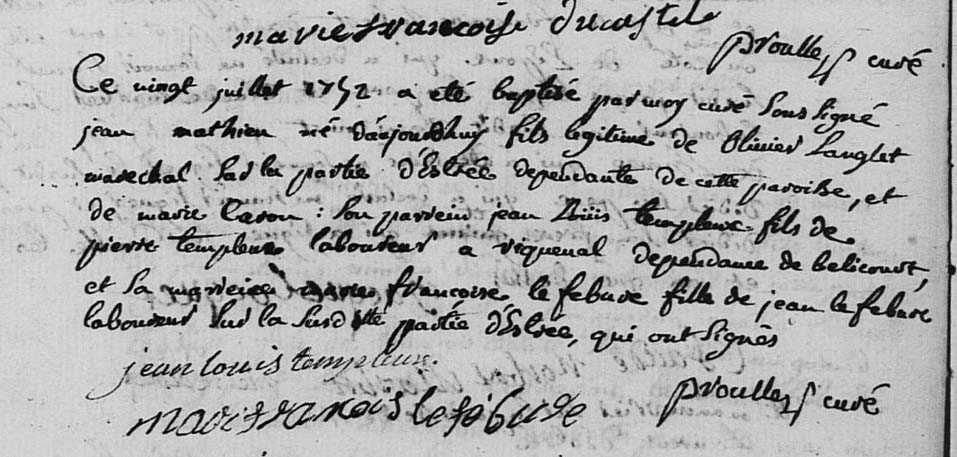 marie francoise ducastel
proulle curé
Ce vingt juillet 1752 a eté baptisé par moy curé soussigné
jean mathieu né daujourdhuy fils legitime de Olivier Langlet
marechal sur la partie d'Estrée dependante de cette paroisse, et
de marie Caron : son parrein jean Louis templeux fils de
pierre templeux laboureur a riquenal dependance de belicourt,
et sa marreine marie francoise le febure fille de jean le febure
laboureur sur la susditte partie d'Estrée, qui ont signés
jean louis templeux.
marifranois lefébure
proulle curé